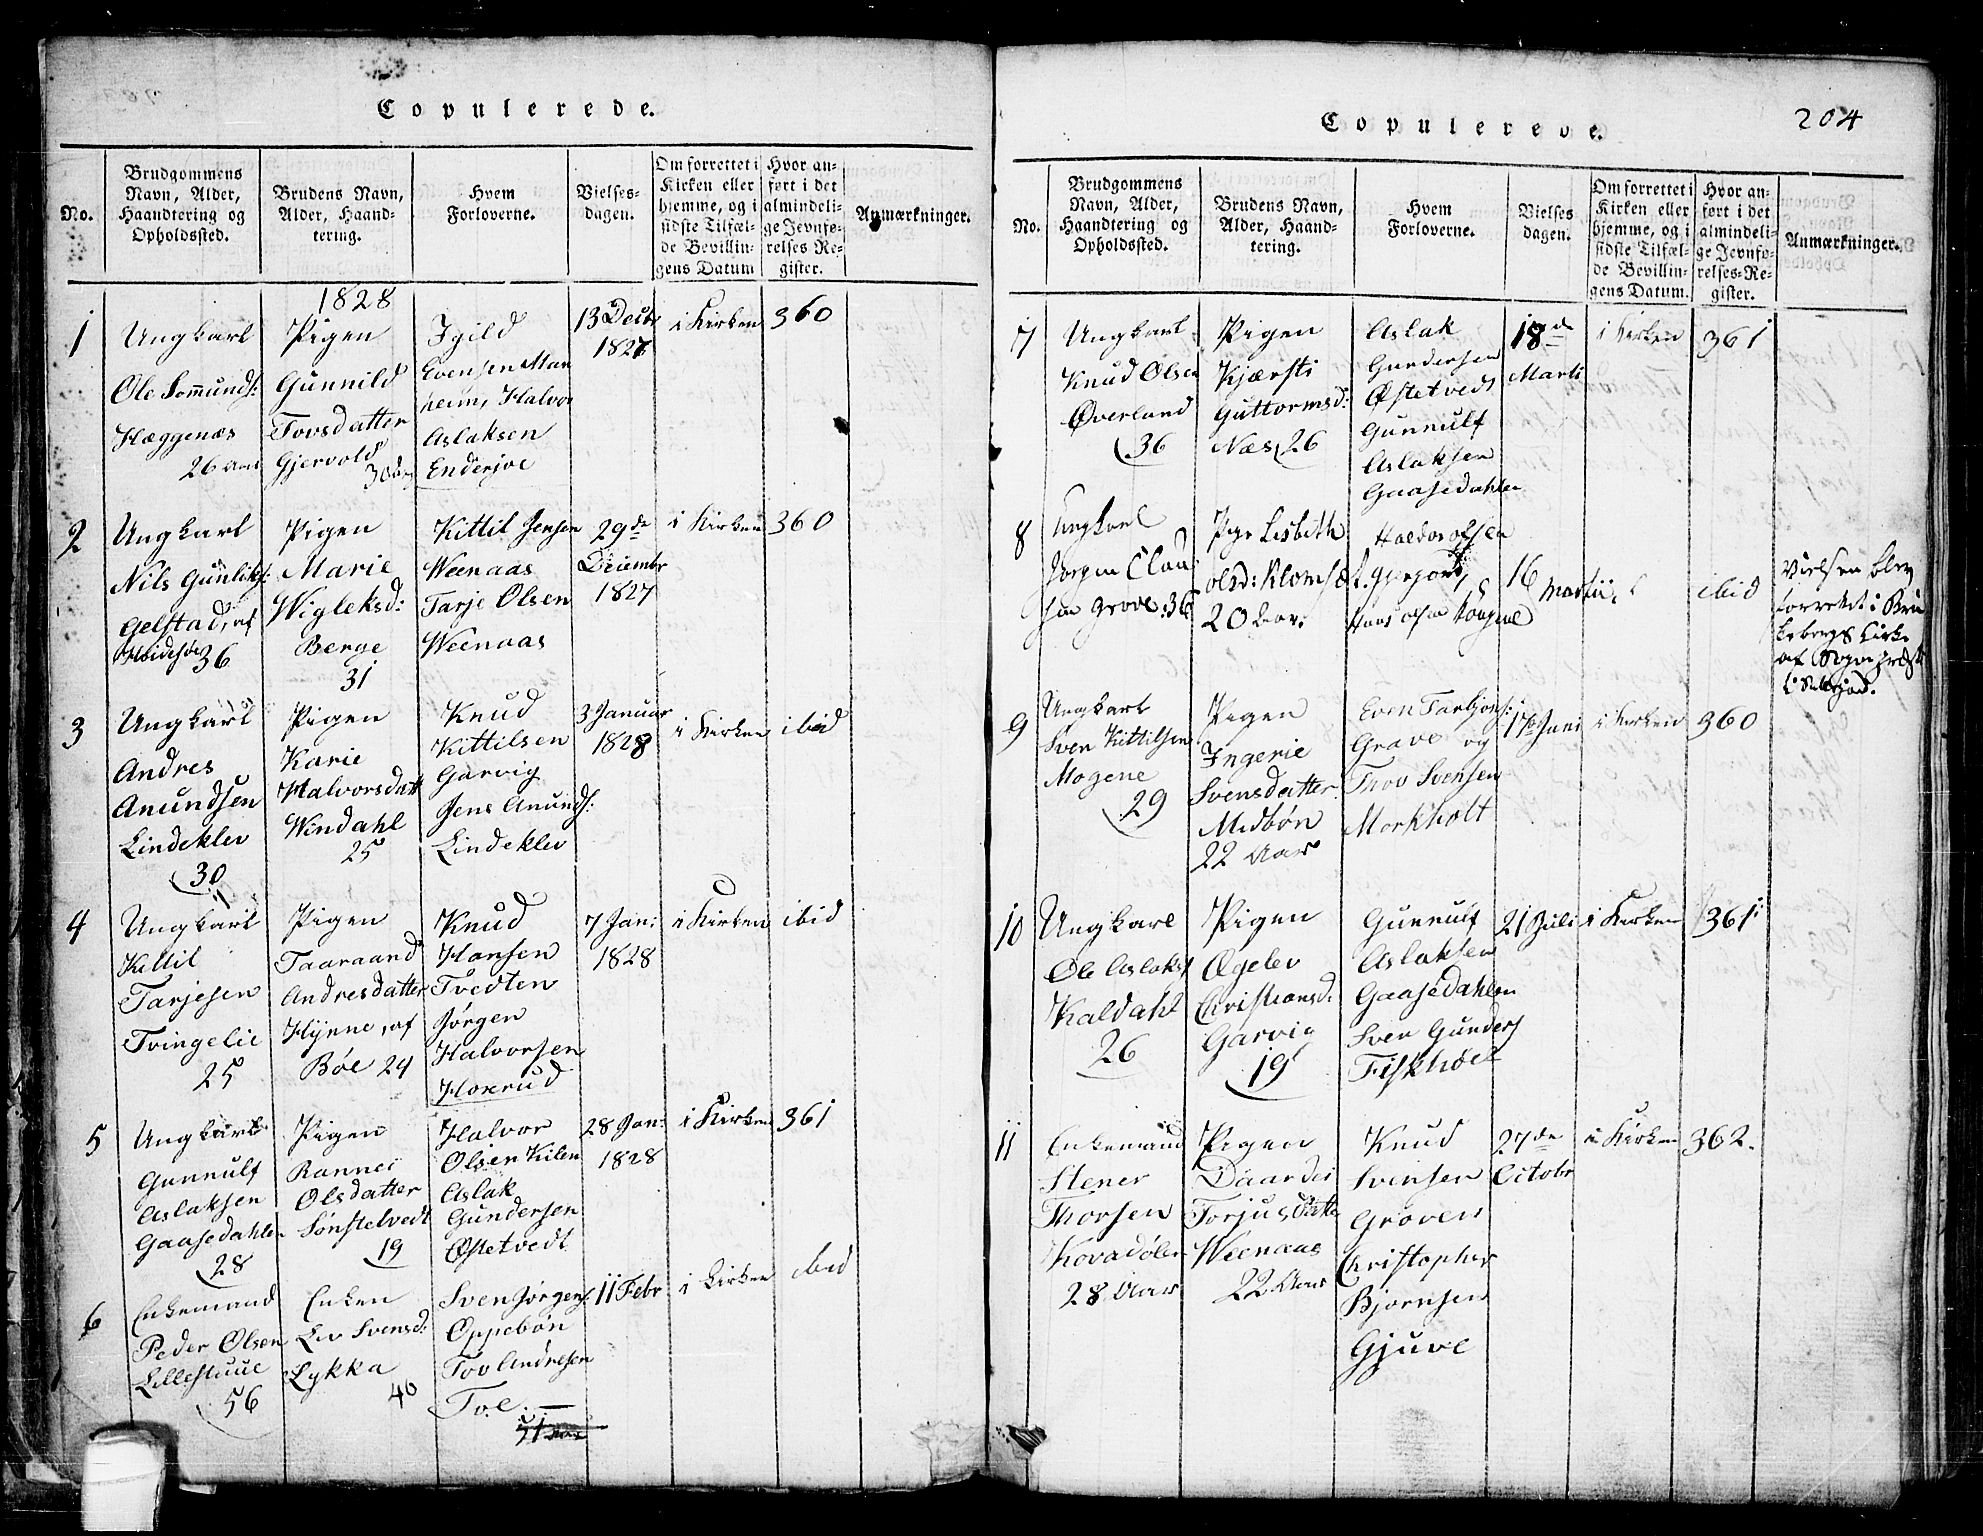 Copulerede.
No.
Brudgommens
Navn, Alder,
Haandtering og
Opholdssted.
Brudens Navn,
Alder, Haand-
tering.
Hvem
Forloverne.
Vielses-
dagen.
Om forrettet i
Kirken eller
hjemme, og i
sidste Tilfæl-
de Bevillin-
gens Datum
Hvor an-
ført i det
almindeli-
ge Jevnfø-
relses Re-
gister.
Anmærkninger.
1828
1
Ungkarl
Ole Somunds:
Hæggenæs
26 Aar
Pigen
Gunnild
Tovsdatter
Gjervold
30
Igild
Evensen Man
heim, Halvor
Aslaksen
Enderjoe
13 Decbr
1827
i Kirken
360
2
Ungkarl
Nils Gunliks:
Gelstad, af
Hvidesøe 36
Pigen
Marie
Wigleksd:
Berge
31
Kittil Jensen
Weenaas
Tarje Olsen
Weenaas
29de
Decembr
1827
i Kirken
360
3
Ungkarl
Andres
Anundsen
Lindeklev
30
Pigen
Karie
Halvorsdatt
Windahl
25
Knud
Kittilsen
Garvig
Jens Anunds:
Lindeklev
3 Januar
1828
i Kirken
ibid
4
Ungkarl
Kittil
Tarjesen
Tvingelie
25
Pigen
Taaraand
Andresdatter
Hynne, af
Bøe 24
Knud
Hansen
Tvedten
Jørgen
Halvorsen
Haxerud
7 Jan:
1828
i Kirken
ibid
5
Ungkarl
Gunnulf
Aslaksen
Gaasedahlen
28
Pigen
Rannei
Olsdatter
Sønstelvedt
19
Halvor
Olsen Kilen
Aslak
Gundersen
Østetvedt
28 Jan:
1828
i Kirken
361
6
Enkemand
Peder Olsen
Lillestuue
56
Enken
Liv Svensd:
Lykka
40
Sven Jørgens:
Oppebøn
Tov Andresen
Toe
11 Febr
i Kirken
ibid
Copulerede.
204
No.
Brudgommens
Navn, Alder,
Haandtering og
Opholdssted.
Brudens Navn,
Alder, Haand-
tering.
Hvem
Forloverne.
Vielses
dagen.
Om forrettet i
Kirken eller
hjemme, og i
sidste Tilfæl-
de Bevillin-
gens Datum.
Hvor an-
ført i det
almindeli-
ge Jevnfø-
relses-Re-
gister.
Anmærkninger.
7
Ungkarl
Knud Olsen
Øverland
36
Pigen
Kjærsti
Guttormsd:
Næs 26
Aslak
Gundersen
Østetvedt
Gunnulf
Aslaksen
Gaasedahlen
18de
Marti
i Kirken
361
8
Ungkarl
Jørgen Clau
sen Grove 36
Pige Lisbeth
Olsd: Klomset
20 Aar.
Haldor Olsen
Hans Olsen
16 Martii
ibid
Vielsen blev
forrettet i Bru
kebergs Kirke
af Sognepræst
9
Ungkarl
Sven Kittilsen
Mogene
29
Pigen
Ingerie
Svensdatter
Midbøn
22 Aar
Even Tarbjøns:
Grave og
Thov Svensen
Morkholt
17de Juni
i Kirken
360
10
Ungkarl
Ole Aslaks
Kaldahl
26
Pigen
Øgelev
Christiansd:
Garvig
19
Gunnulf
Aslaksen
Gaasedahlen
Sven Gunders
Fiskhøel
21 Juli
i Kirken
361
11
Enkemand
Stener
Thorsen
Kovadølen
28 Aar
Pigen
Daardei
Torjusdatter
Weenaas
22 Aar
Knud
Svensen
Groven
Christopher
Bjørnsen
Gjuve
27de
Octobr
i Kirken
362.